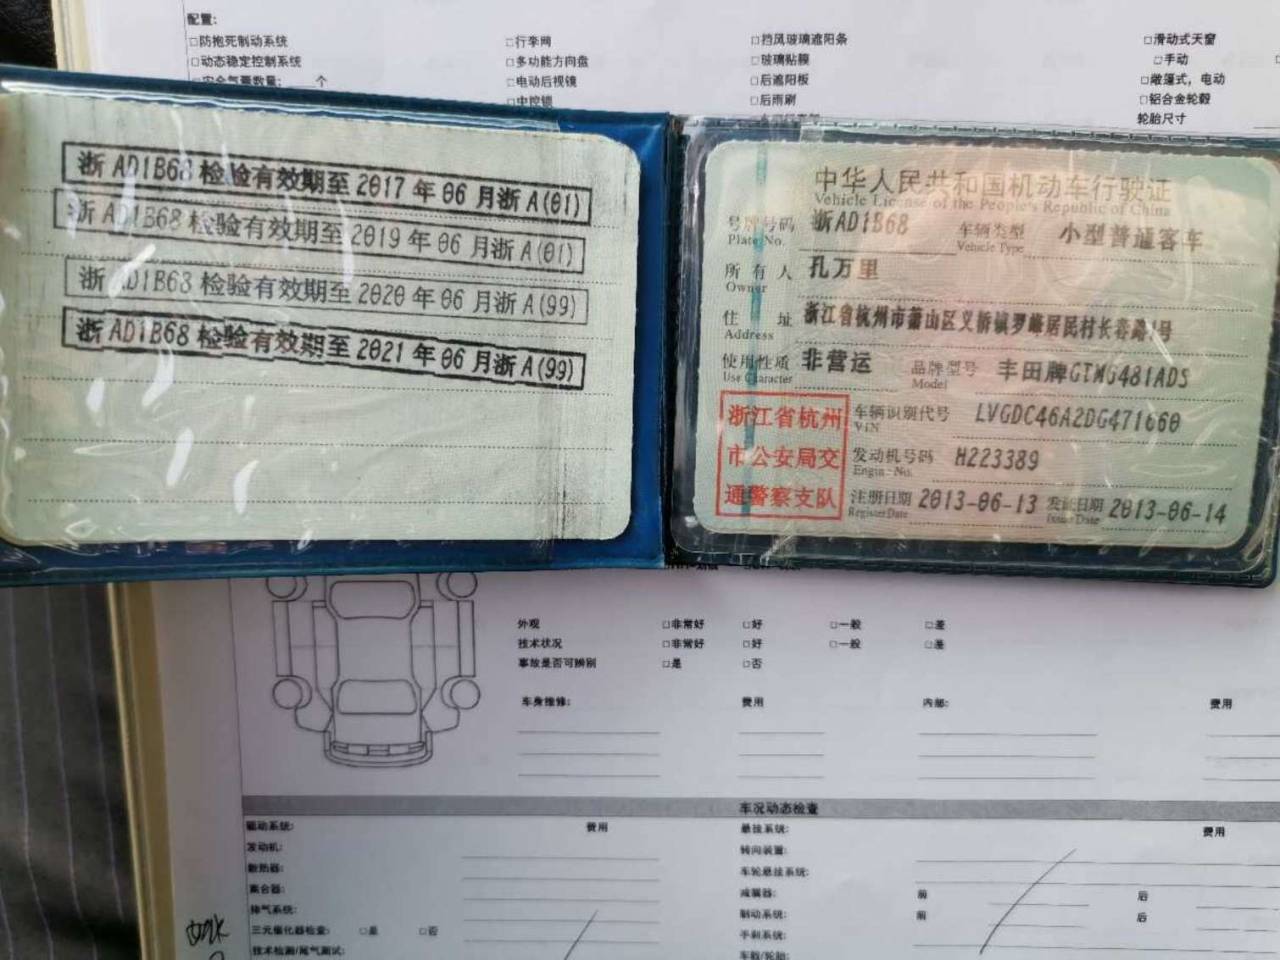 配置:
□防抱死制动系统 □行李网 □挡风玻璃遮阳条 □滑动式天窗
□动态稳定控制系统 □多功能方向盘 □玻璃贴膜 □手动
□安全气囊数量: 个 □电动后视镜 □后遮阳板 □敞篷式，电动
□中控锁 □后雨刷 □铝合金轮毂
轮胎尺寸
浙AD1B68检验有效期至2017年06月浙A(01)
浙AD1B68检验有效期至2019年06月浙A(01)
浙AD1B68检验有效期至2020年06月浙A(99)
浙AD1B68检验有效期至2021年06月浙A(99)
中华人民共和国机动车行驶证
Vehicle License of the People's Republic of China
号牌号码 浙AD1B68 车辆类型 小型普通客车
Plate No. Vehicle Type
所有人 孔万里
Owner
住址 浙江省杭州市萧山区义桥镇罗峰居民村长春路 号
Address
使用性质 非营运 品牌型号 丰田牌GTM6481ADS
Use Character Model
浙江省杭州市公安局交通警察支队
车辆识别代号 LVGDC46A2DG471660
VIN
发动机号码 H223389
Engine No.
注册日期 2013-06-13 发证日期 2013-06-14
Register Date Issue Date
外观 □非常好 □好 □一般 □差
技术状况 □非常好 □好 □一般 □差
事故是否可辨别 □是 □否
车身维修: 费用 内部: 费用
车况动态检查
驱动系统: 费用 悬挂系统: 费用
发动机: 转向装置:
散热器: 车轮悬挂系统:
离合器: 减震器: 前 后
排气系统: 制动系统: 前 后
三元催化器检查: □是 □否 手刹系统:
技术检测/尾气测试: 车毂/轮胎: